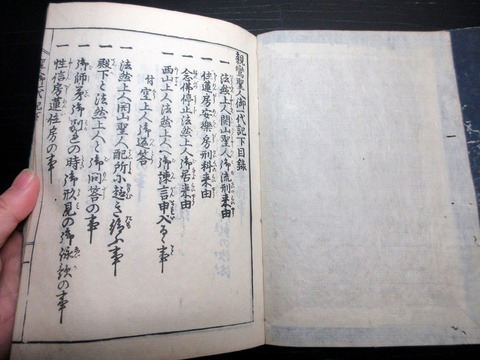 親鸞聖人御一代記下目録
一 法然上人開山聖人御流刑来由
一 住蓮房安樂房刑科来由
一 念佛停止法然上人御居来由
一 西山上人法然上人へ御諫言申入るゝ事
付 空上人御返答
一 法然上人開山聖人配所に趣き給ふ事
一 殿下と法然上人と御問答の事
一 御師弟御別の時御形見の御詠歌の事
一 性信房蓮住房の事